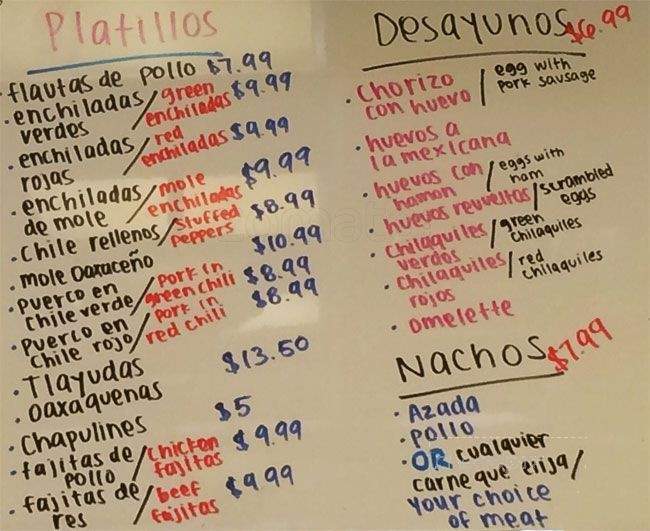 Platillos
• flautas de pollo $7.99
• enchiladas verdes / green enchiladas $9.99
• enchiladas rojas / red enchiladas $9.99
• enchiladas de mole / mole enchiladas $9.99
• Chile rellenos / stuffed peppers $8.99
• mole Oaxaceño $10.99
• puerco en Chile verde / pork in green chili $8.99
• puerco en Chile rojo / pork in red chili $8.99
• Tlayudas $13.50
• oaxaquenas
• Chapulines $5
• fajitas de pollo / Chicken fajitas $9.99
• fajitas de res / beef fajitas $9.99
Desayunos $6.99
• Chorizo con huevo / egg with pork sausage
• huevos a la mexicana
• huevos con hamon / eggs with ham
• huevos revueltos / scrambled eggs
• Chilaquiles verdos / green Chilaquiles
• Chilaquiles rojos / red Chilaquiles
• omelette
Nachos $7.99
• Azada
• pollo
• OR, cualquier
carne que elija /
your choice
of meat